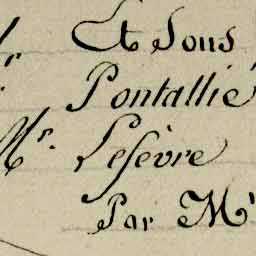 Et Sous
r. Pontallié
Mr. Lefèvre
Par Mr